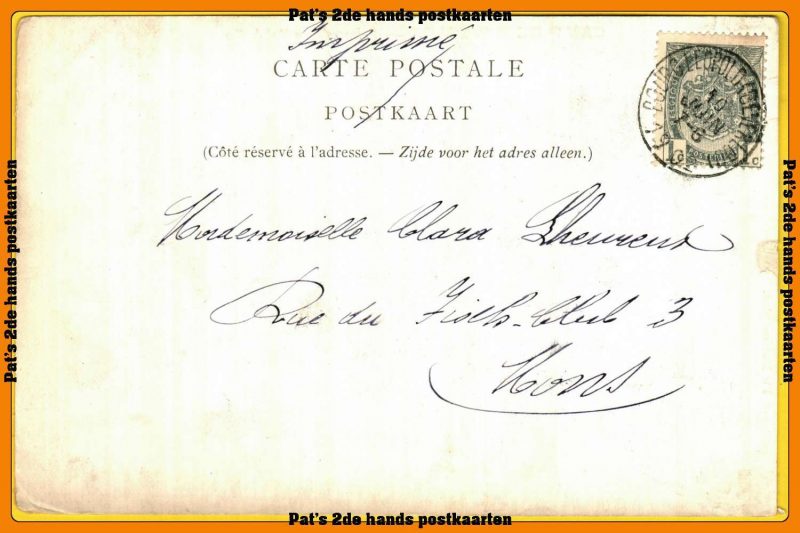 Pat's 2de hands postkaarten
Imprimé
CARTE POSTALE
POSTKAART
(Côté réservé à l'adresse. — Zijde voor het adres alleen.)
Mademoiselle Clara Lheureux
Rue du Fish-Club 3
Mons
BOURG-LEOPOLD
10
JUIN
Pat's 2de hands postkaarten
Pat's 2de hands postkaarten
Pat's 2de hands postkaarten